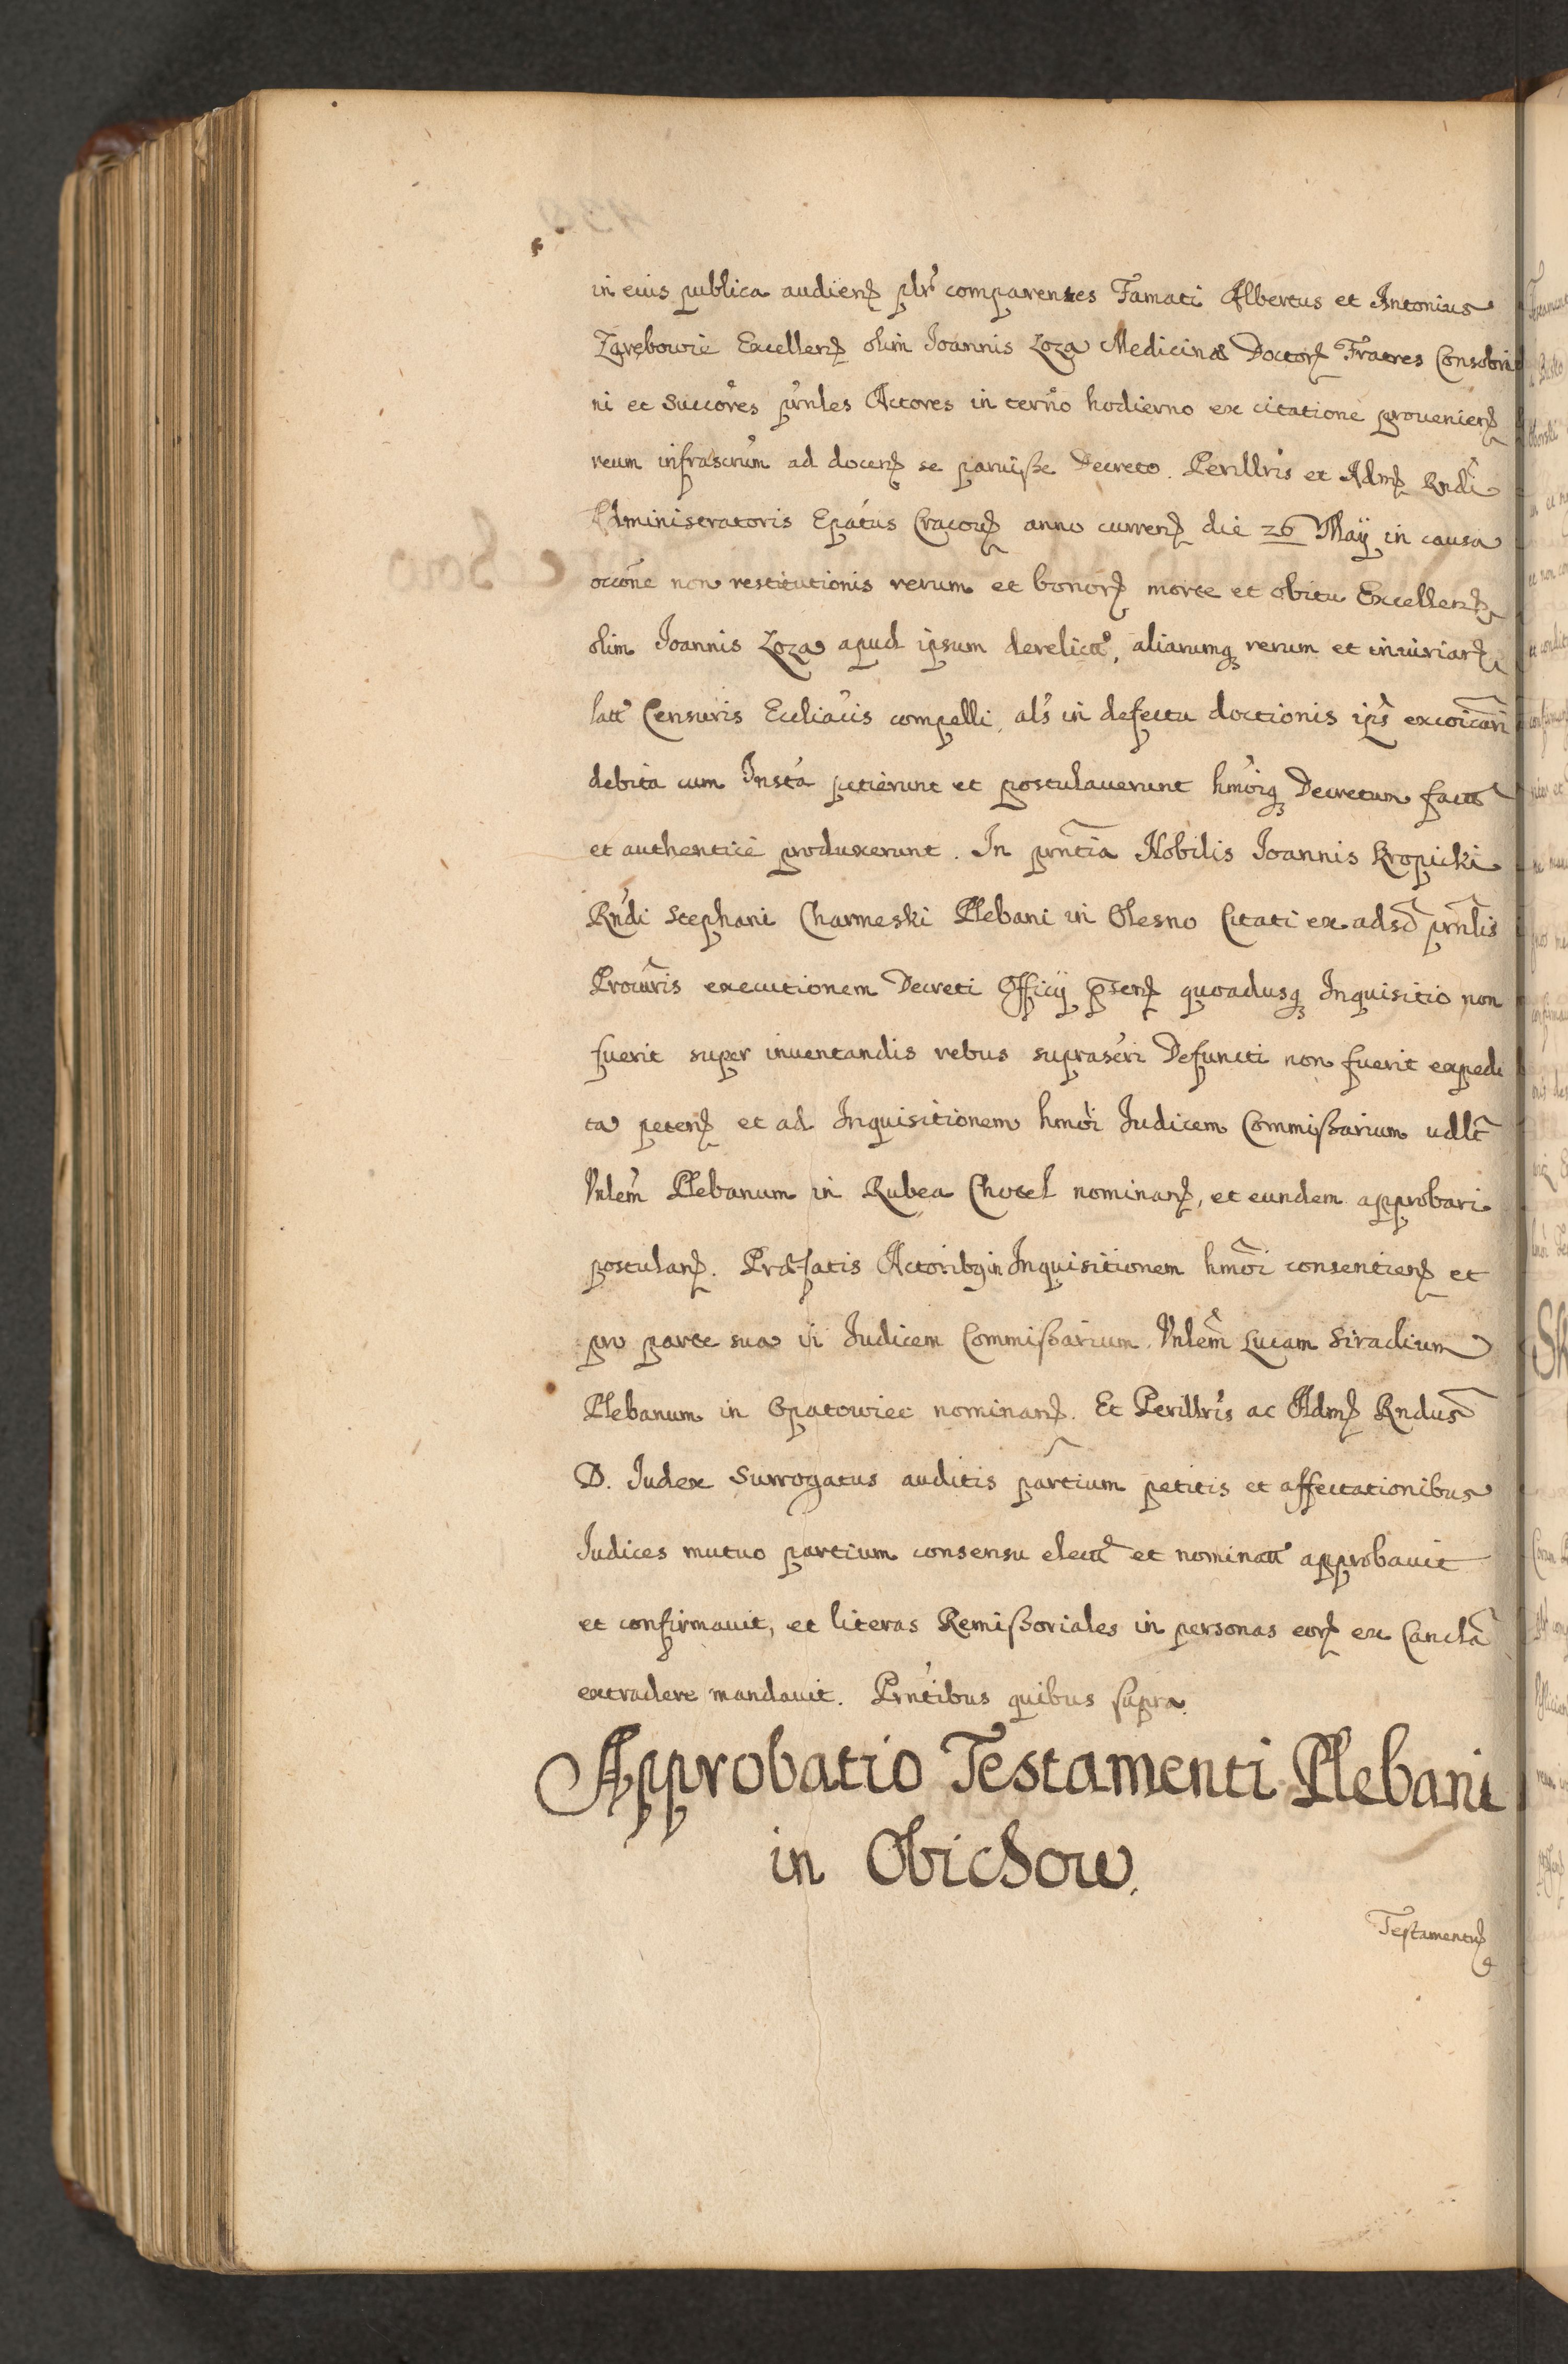 in eius publica audienꝫ plr̃ comparentes Famati Albertus et Antonius
Zgrębowie Excellenꝫ olim Joannis Loza Medicinæ Doctorꝫ Fratres Consobri
ni et Succor̃es pr̃ntes Actores in terño hodierno ex citatione prouenienꝫ
reum infrascrũm ad docenꝫ se paruiße Decreto. Perillris et Admꝫ Rndi
Administratoris Epatus Cracouꝫ anno currenꝫ die 26 Maij in causa
occone non restitutionis rerum et bonorꝫ morte et obitu Excellenꝫ
olim Joannis Loza apud ipsum derelict, aliarumqꝫ rerum et iniuriarꝫ
latt Censuris Eccliacis compelli, als in defectu doctionis ips excoicari
debita cum Insta petierunt et postulauerunt hmoiqꝫ Decretum
et authentice produxerunt. In prntia Nobilis Joannis Kropicki
Rndi Stephani Charmeski Plebani in Olesno Citati ex adso prntis
Procuris executionem Decreti Officij psenꝫ quoadusqꝫ Inquisitio non
fuerit super inuentandis rebus suprascri Defuncti non fuerit expedi
ta petenꝫ et ad Inquisitionem hmoi Iudicem Commißarium vdlt
Vnlem Plebanum in Rubea Chotel nominanꝫ, et eundem approbari
postulanꝫ. Præfatis Actoribꝫ in Inquisitionem hmoi consentienꝫ et
pro parte sua in Iudicem Commißarium Vnlem Lucam Siradium
Plebanum in Opatowiec nominanꝫ. Et Perillris ac Admꝫ Rndus
D. Iudex Surrogatus auditis partium petitis et affectationibus
Iudices mutuo partium consensu elect et nominatt approbauit
et confirmauit, et literas Remißoriales in personas eorꝫ ex Cancla
extradere mandauit. Prntibus quibus supra.
Approbatio Testamenti Plebani
in Obichow.
Testamentuꝫ